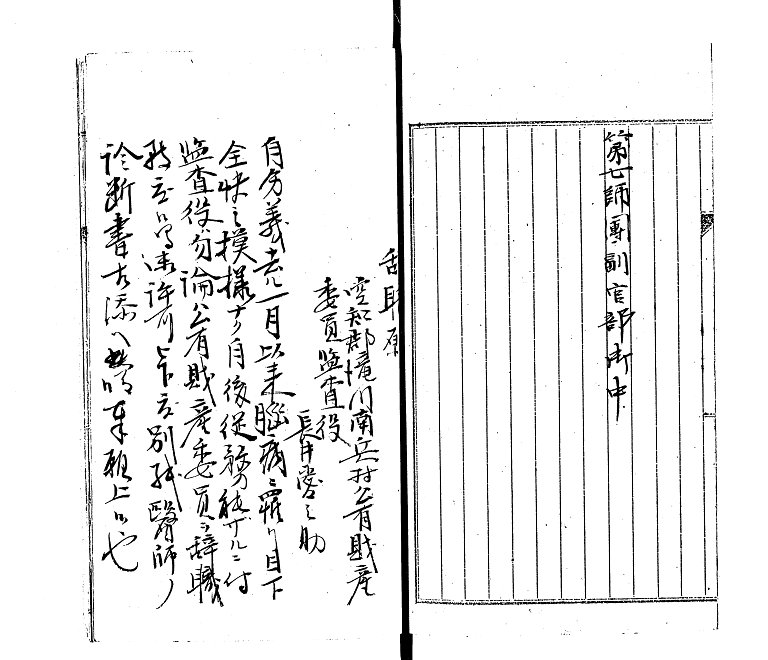 第七師團副官部御中
舌耴願
空知郡滝川南兵村公有財産
委員監査役
長井愛之助
自分義去八一月以来脳病ニ罹リ目下
全快之摸様ナク自後従務能ザルニ付
監査役勿論公有財産委員ヲ辞職
致度候間速許可上下度別紙醫師ノ
診断書相添ヘ此段奉願上候也